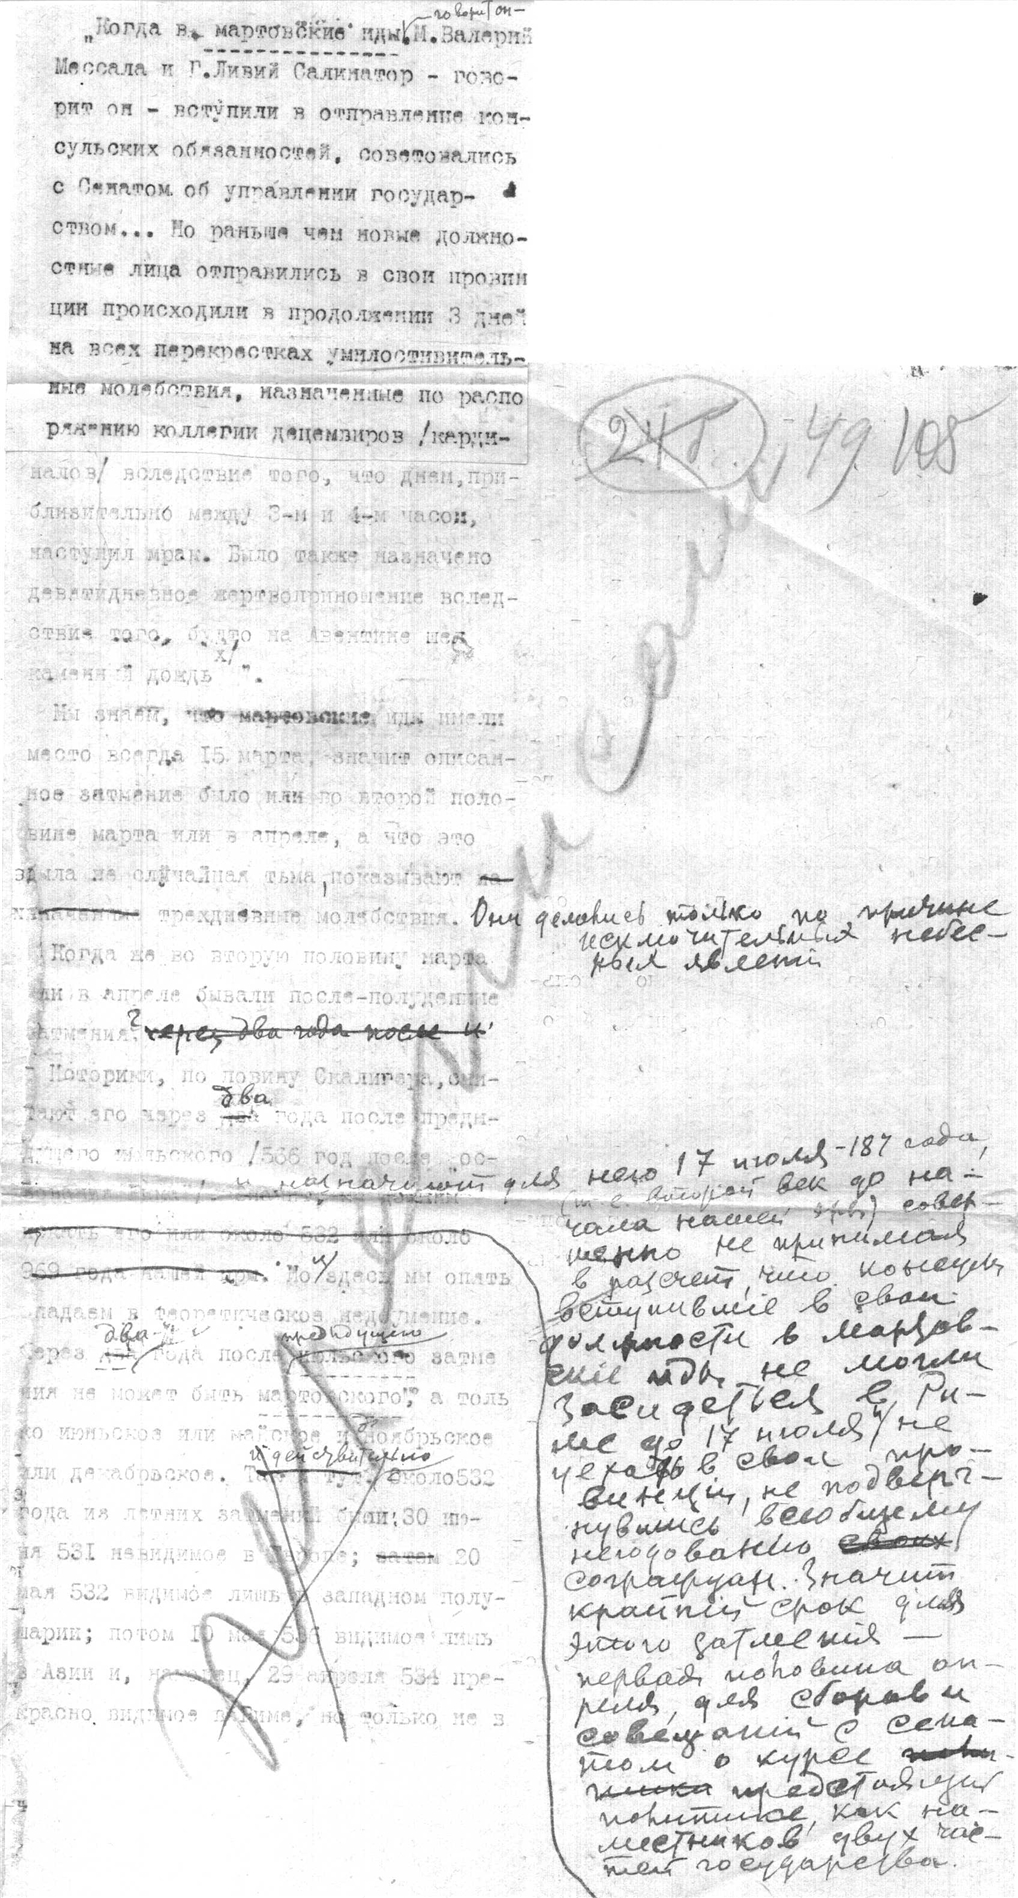 говорит он-
„Когда в мартовские иды М.Валерий
Мессала и Г.Ливий Салинатор - гово-
рит он - вступили в отправление кон-
сульских обязанностей, советовались
с Сенатом об управлении государ-
ством... Но раньше чем новые должно-
стные лица отправились в свои провин
ции происходили в продолжении 3 дней
на всех перекрестках умилостивитель-
ные молебствия, назначенные по распо
ряжению коллегии децемвиров /карди-
налов/ вследствие того, что днем, при-
близительно между 3-м и 4-м часом,
наступил мрак. Было также назначено
девятидневное жертвоприношение вслед-
ствие того, будто на Авентине шел
каменный дождь х/".
248 49 105
Мы знаем, что мартовские иды имели
место всегда 15 марта, значит описан-
ное затмение было или во второй поло-
вине марта или в апреле, а что это
была не случайная тьма, показывают на-
значенные трехдневные молебствия. Они делались только по причине
исключительных небес-
ных явлений
Когда же во вторую половину марта
или в апреле бывали после-полуденные
затмения? через два года после и
Историки, по почину Скалигера, счи-
два
тают его через два года после преды-
дущего июльского /566 год после ос-
и назначают для него 17 июля -187 года,
(т.е. второй век до на-
чала нашей эры) совер-
шенно не принимая
в рассчет, что консулы
вступившие в свои
должности в мартов-
ские иды не могли
засидеться в Ри-
ме до 17 июля и не
уехать в свои про-
винции, не подверг-
нувшись всеобщему
негодованию своих
сограждан. Значит
крайний срок для
этого затмения —
первая половина ап-
реля, для сборов и
совещаний с сена-
том о курсе поли-
тики предстоящей
политике, как на-
местников двух час-
тей государства.
искать его или около 532 или около
969 года нашей эры. Но и здесь мы опять
впадаем в теоретическое недоумение.
два предыдущего
Через два года после июльского затме
ния не может быть мартовского, а толь
ко июньское или майское и ноябрьское
и действительно
или декабрьское. Так и тут. Около 532
года из летних затмений были: 30 ию-
ня 531 невидимое в Европе; затем 20
мая 532 видимое лишь в западном полу-
шарии; потом 10 мая 536 видимое лишь
в Азии и, наконец, 29 апреля 534 пре-
красно видимое в Риме, но только не в